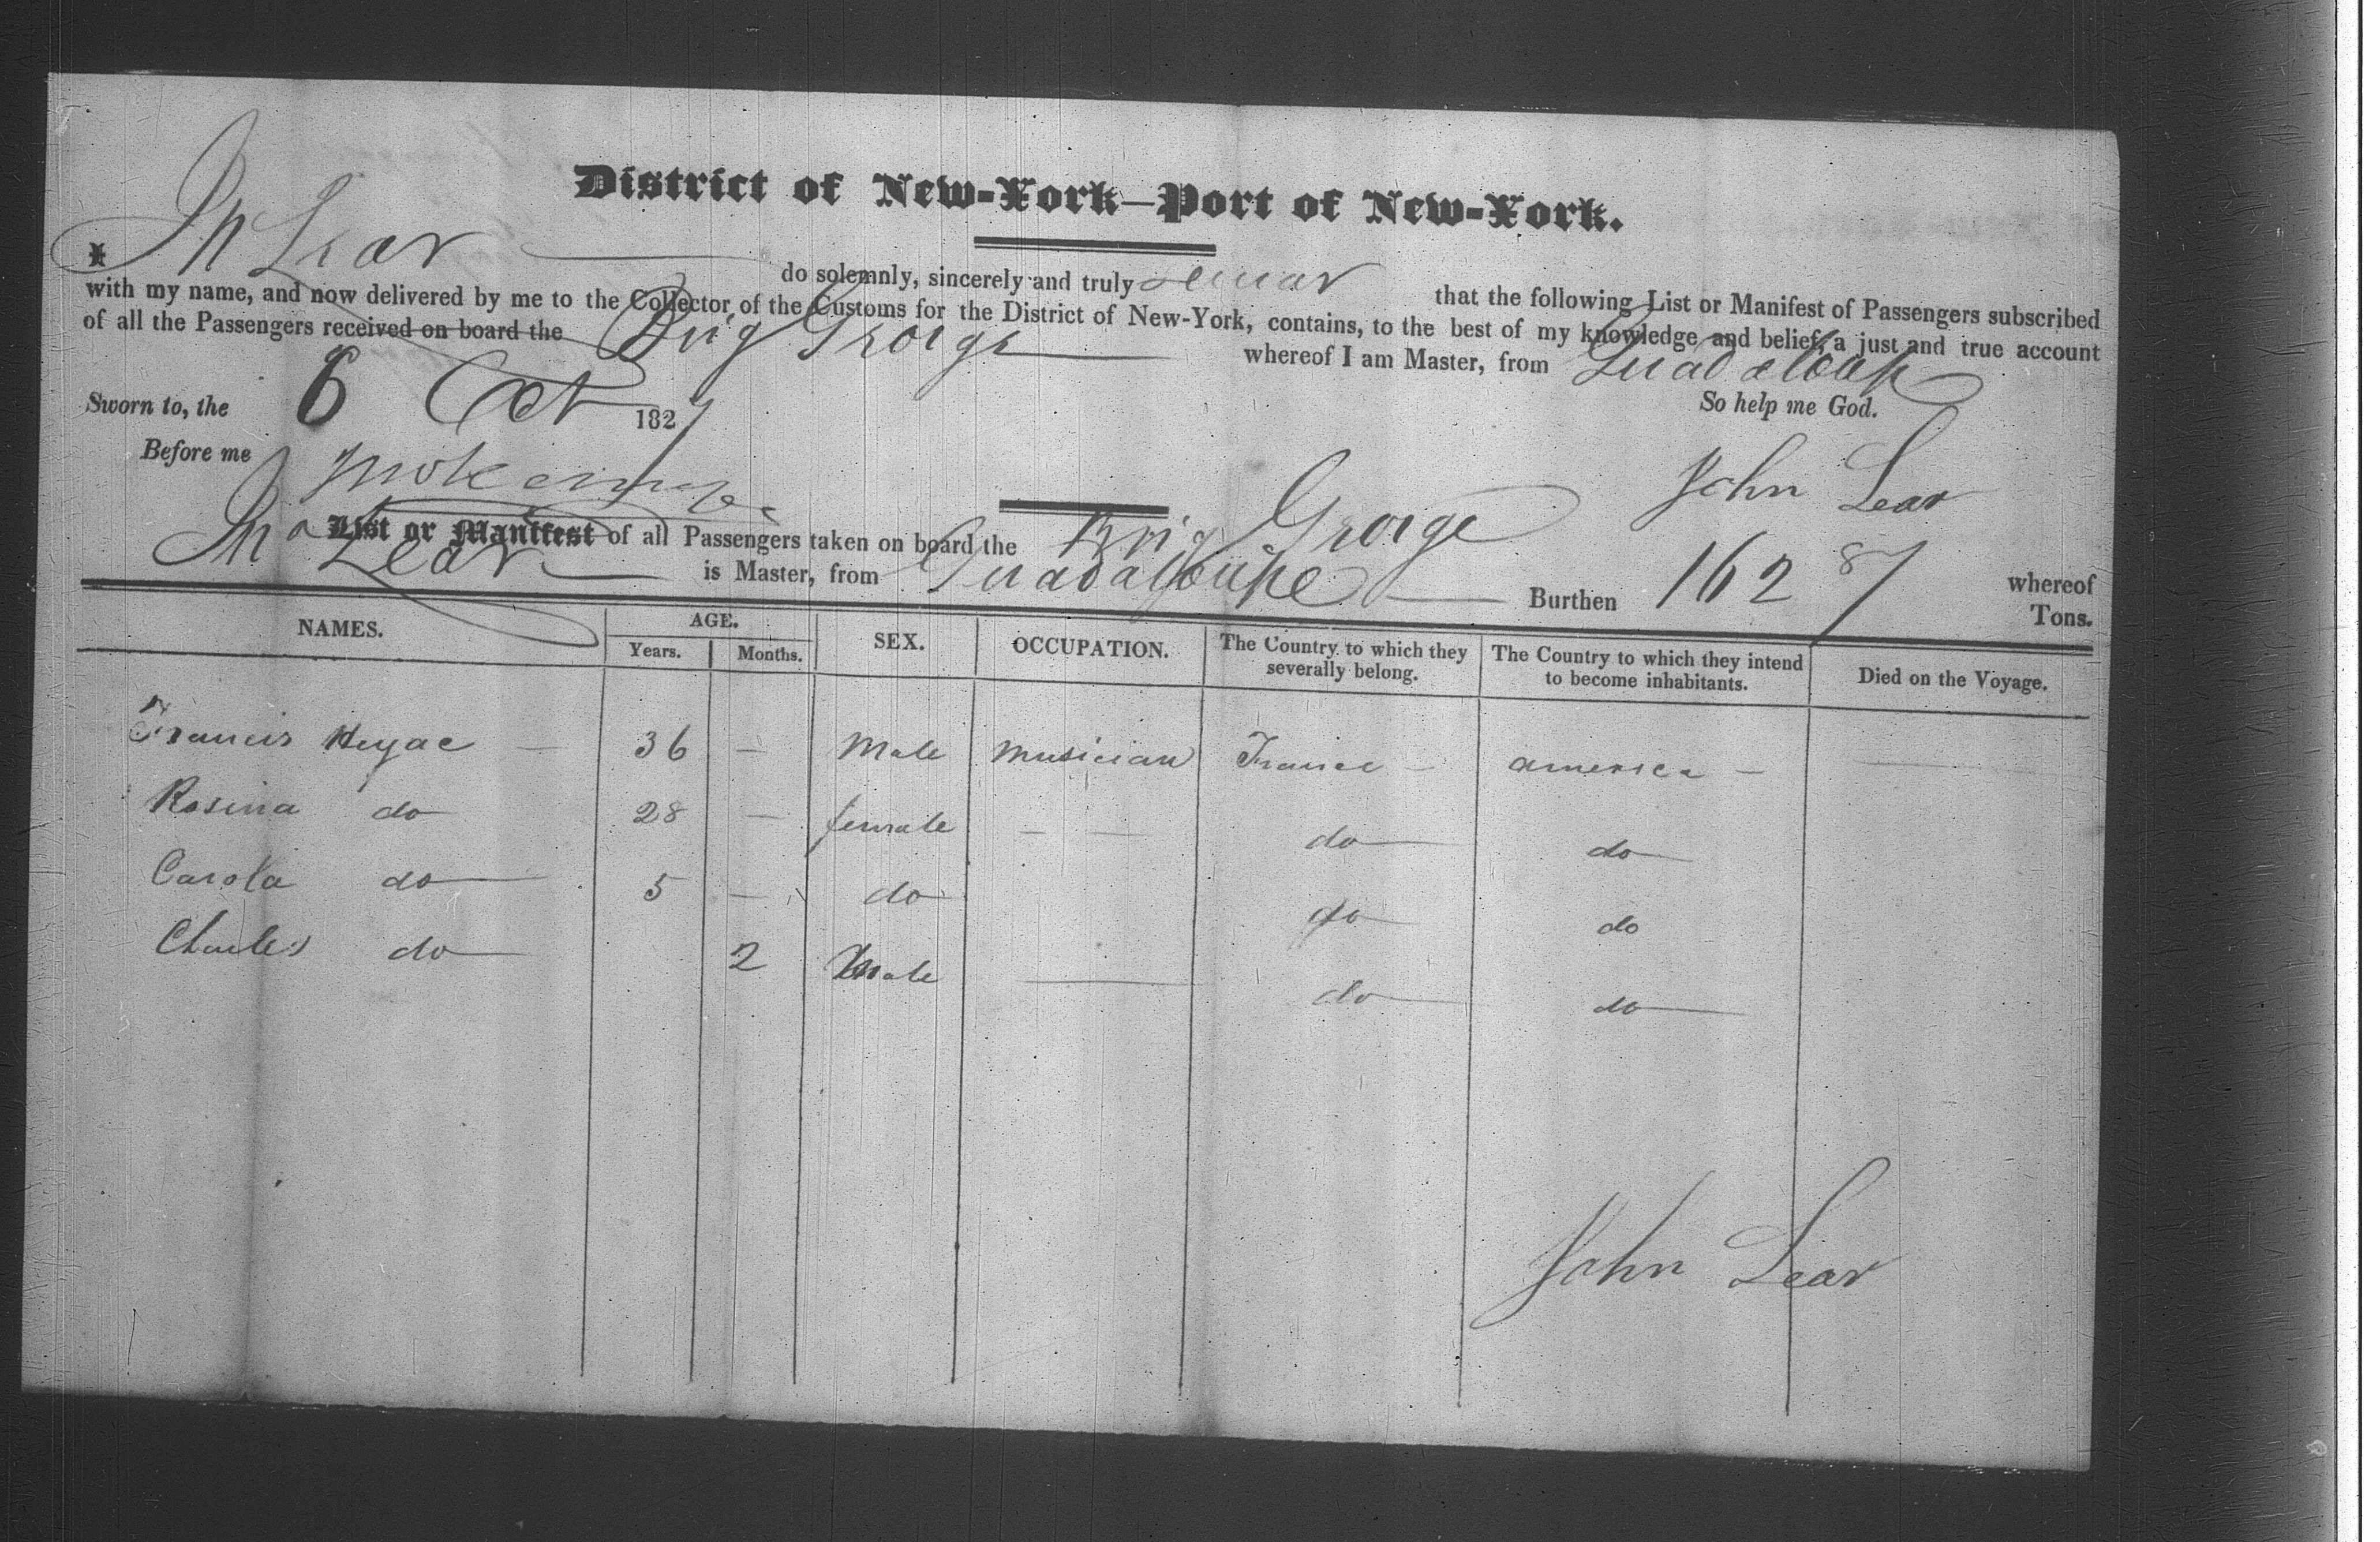 District of New-York—Port of New-York.
I Jn Lear do solemnly, sincerely and truly swear that the following List or Manifest of Passengers subscribed
with my name, and now delivered by me to the Collector of the Customs for the District of New-York, contains, to the best of my knowledge and belief, a just and true account
of all the Passengers received on board the Brig George whereof I am Master, from Guadaloupe
Sworn to, the 6 Oct 1827 So help me God.
Before me John Lear
List or Manifest of all Passengers taken on board the Brig George whereof
Jno Lear is Master, from Guadaloupe Burthen 162 87 Tons.
NAMES. AGE. SEX. OCCUPATION. The Country to which they severally belong. The Country to which they intend to become inhabitants. Died on the Voyage.
Years. Months.
Francis Heyac — 36 — Male Musician France — america —
Rosina do 28 — female — — do do
Carola do 5 — do do do
Charles do 2 Male — do do
John Lear